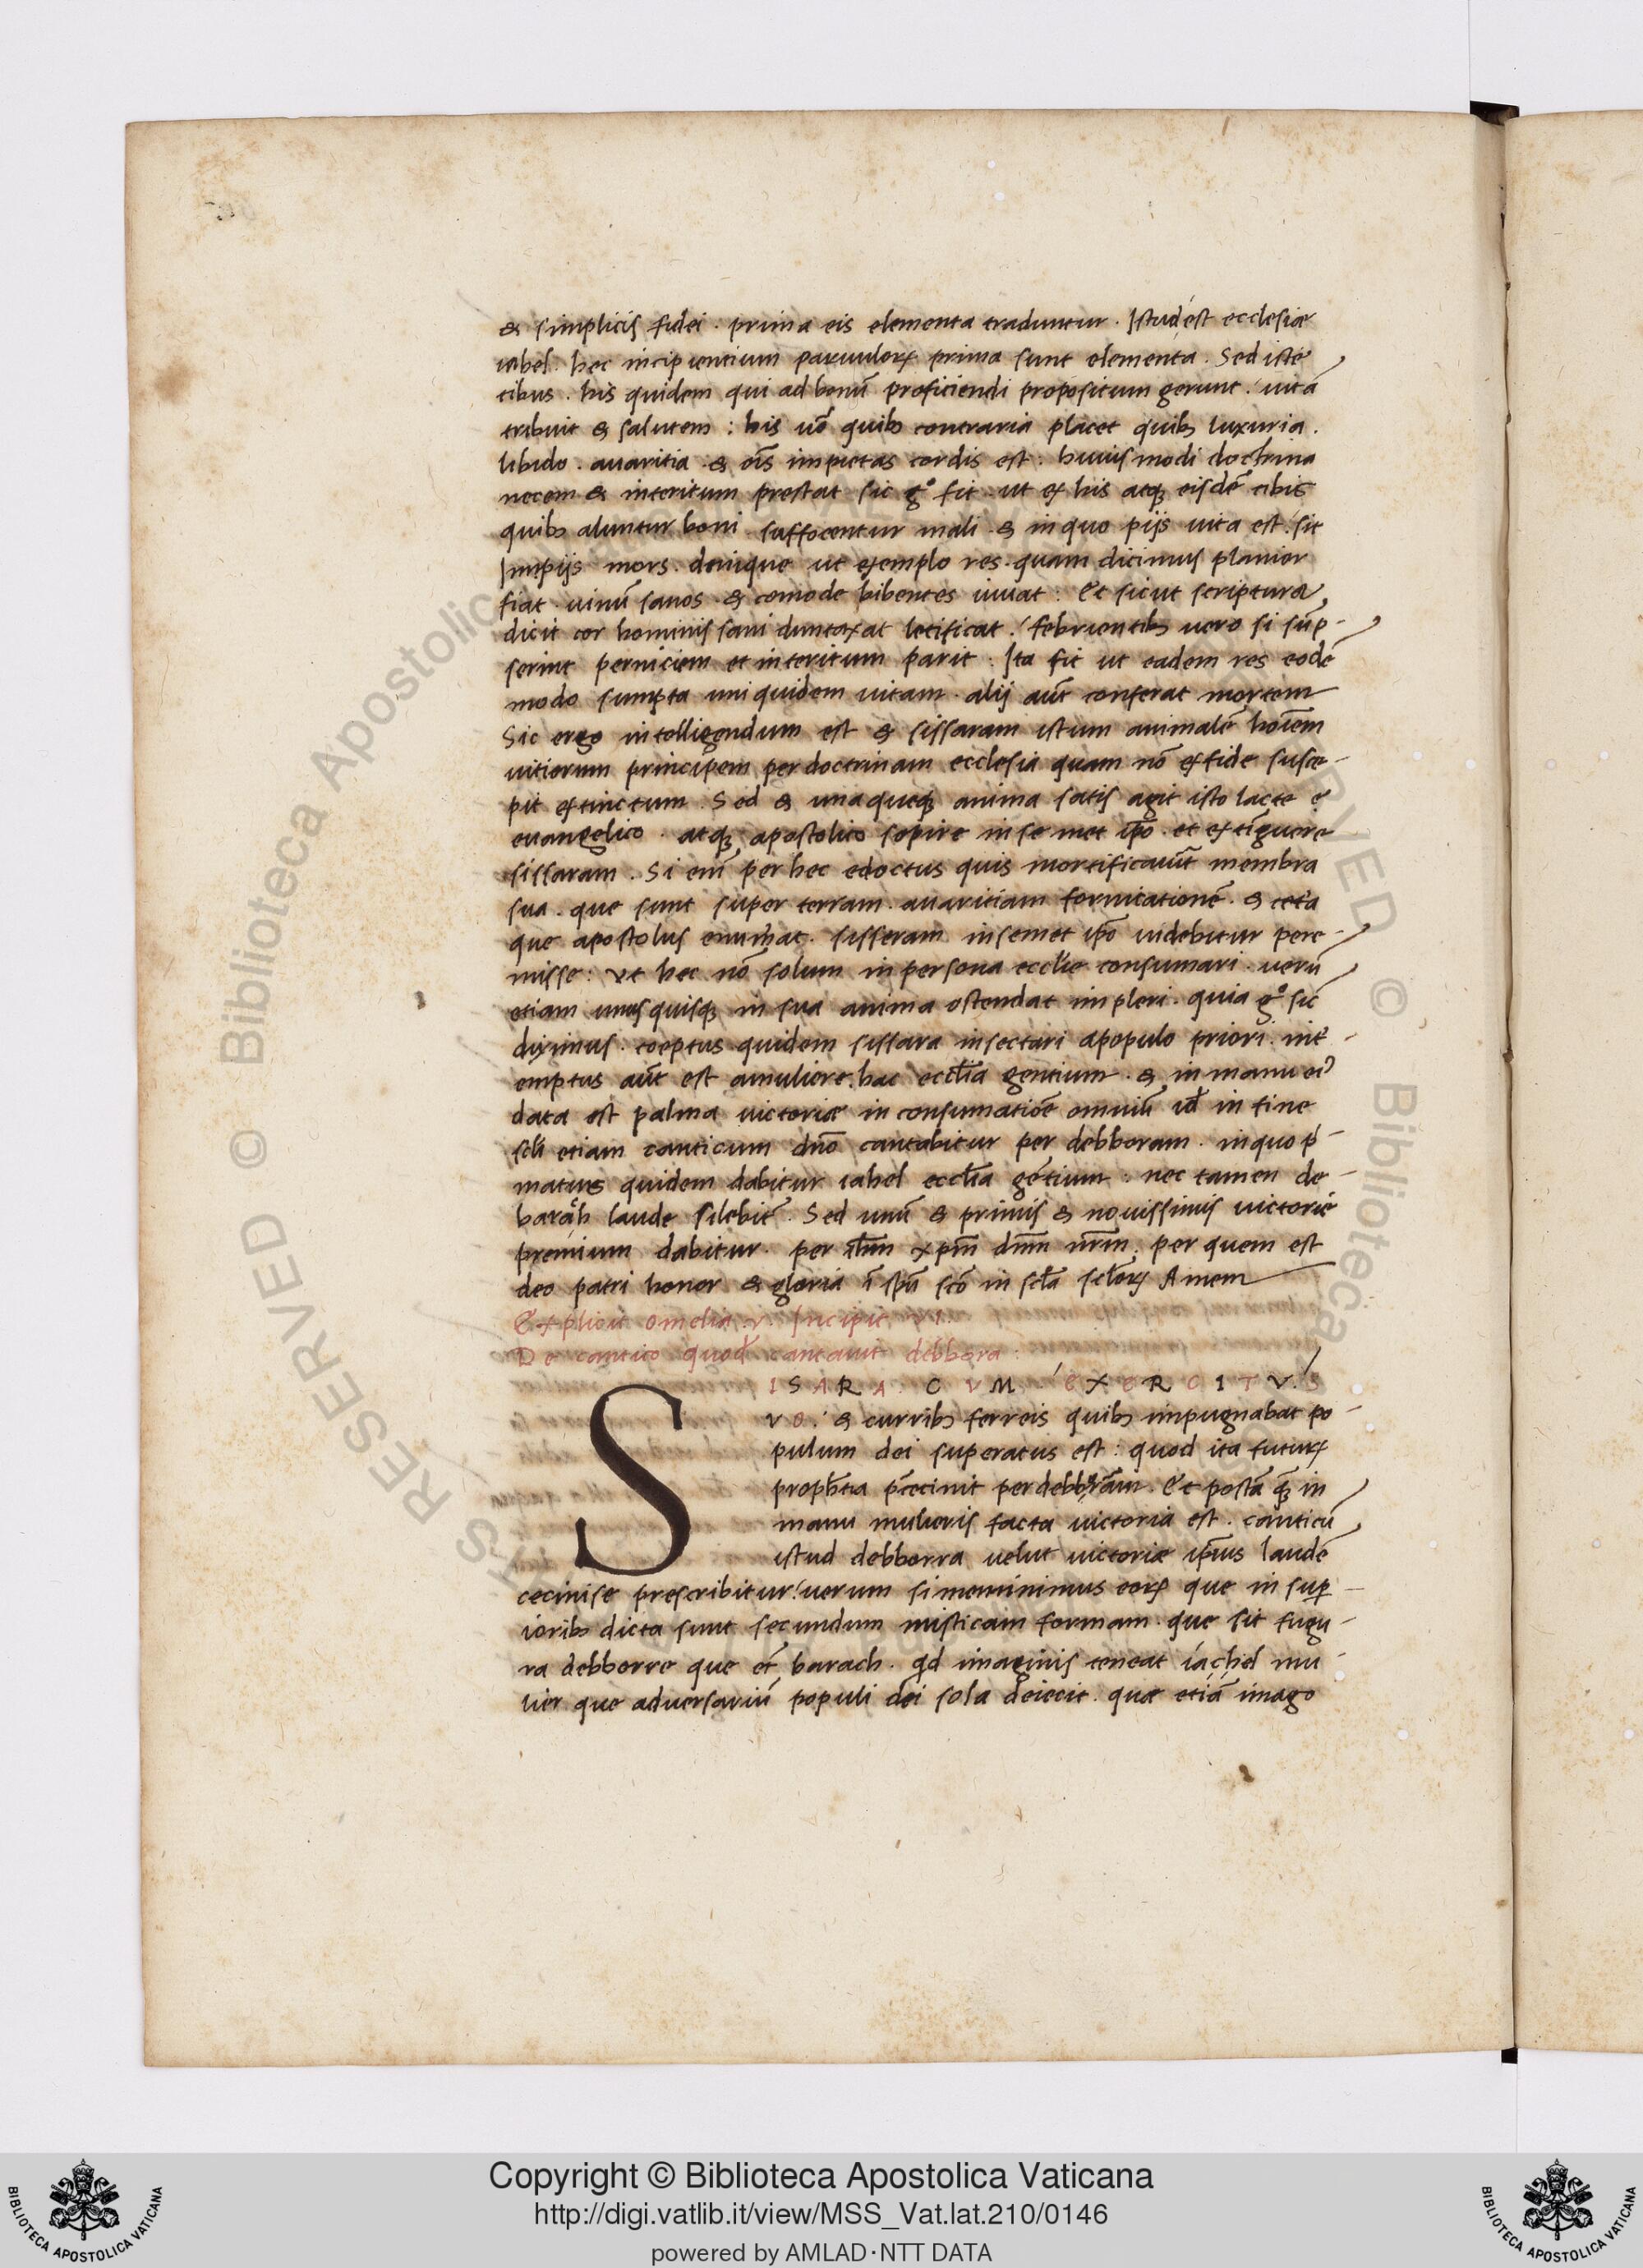 & simplicis fidei . prima eis elementa traduntur . Istud est ecclesiæ
iabel . hec incipientium paruulorꝝ prima sunt elementa . Sed iste
cibus . his quidem qui ad bonū proficiendi propositum gerunt . uitā
tribuit & salutem : his uō quibꝫ contraria placet quibꝫ luxuria .
libido . auaritia . & oīs impietas cordis est . huiusmodi doctrina
necem & interitum prestat sic gº fit . ut ex his atqꝫ eisdē cibis
quibꝫ aluntur boni suffocentur mali . & in quo pijs uita est . sit
Impijs mors . denique ut exemplo res . quam dicimus planior
fiat . uinū sanos . & comode bibentes iuuat : Et sicut scriptura
dicit cor hominis sani duntaxat letificat . febrientibꝫ uero si sūp-
serint perniciem et interitum parit : Ita fit ut eadem res eodē
modo sumpta uni quidem uitam . alij aūt conferat mortem
Sic ergo intelligendum est & sissaram istum animalē hoīem
uitiorum principem per doctrinam ecclesia quam nō ex fide susce-
pit extinctum . Sed & unaqueqꝫ anima satis agit isto lacte
euangelico . atqꝫ apostolico sopire in se met ip̄o . et extīguere
sissaram . Si enī per hec edoctus quis mortificauit̄ membra
sua . que sunt super terram . auaritiam fornicationē . & cet̄a
que apostolus enum̄at . sisseram in semet ip̄o uidebitur pere-
misse : Ut hec nō solum in persona eccl̄ie consumari . uerū
etiam unusquisqꝫ in sua anima ostendat impleri . quia gº sic̄
diximus . coeptus quidem sissara insectari a populo priori . int̄-
emptus aūt est a muliere . hac eccl̄ia gentium . & in manu ei⁹
data est palma uictoriæ in consumatiōe omniū id̄ in fine
scl̄i etiam canticum dn̄o cantabitur per debboram . in quo p̄-
matus quidem dabitur iahel eccl̄ia gētium : nec tamen de-
barach laude silebit̄ . Sed unū & primis & nouissimis uictorie
premium dabitur . per ih̄m xp̄m dn̄m nr̄m . per quem est
deo patri honor & gloria ī sp̄u scō in scl̄a scl̄orꝝ Amem
Explicit omelia .v. Incipit VI.
De cantico quod̄ cantauit debbora :
SISARA . CVM . EXERCITV . S
VO . & curribꝫ ferreis quibꝫ impugnabat po-
pulum dei superatus est : quod ita futurꝝ
proph̄eta p̄cecinit per debborām . Et postā qꝫ in
manu mulieris facta uictoria est . canticū
istud debborra uelut uictoriæ ip̄ius laudē
cecinise prescribitur . uerum si meminimus eorꝝ que in sup̄-
ioribꝫ dicta sunt secundum misticam formam . que sit fugu-
ra debborre que et̄ barach . qd̄ imaginis teneat iachel mu-
lier que aduersariū populi dei sola deiecit . quæ etiā imago
Copyright © Biblioteca Apostolica Vaticana
http://digi.vatlib.it/view/MSS_Vat.lat.210/0146
powered by AMLAD·NTT DATA
BIBLIOTECA APOSTOLICA VATICANA
BIBLIOTECA APOSTOLICA VATICANA